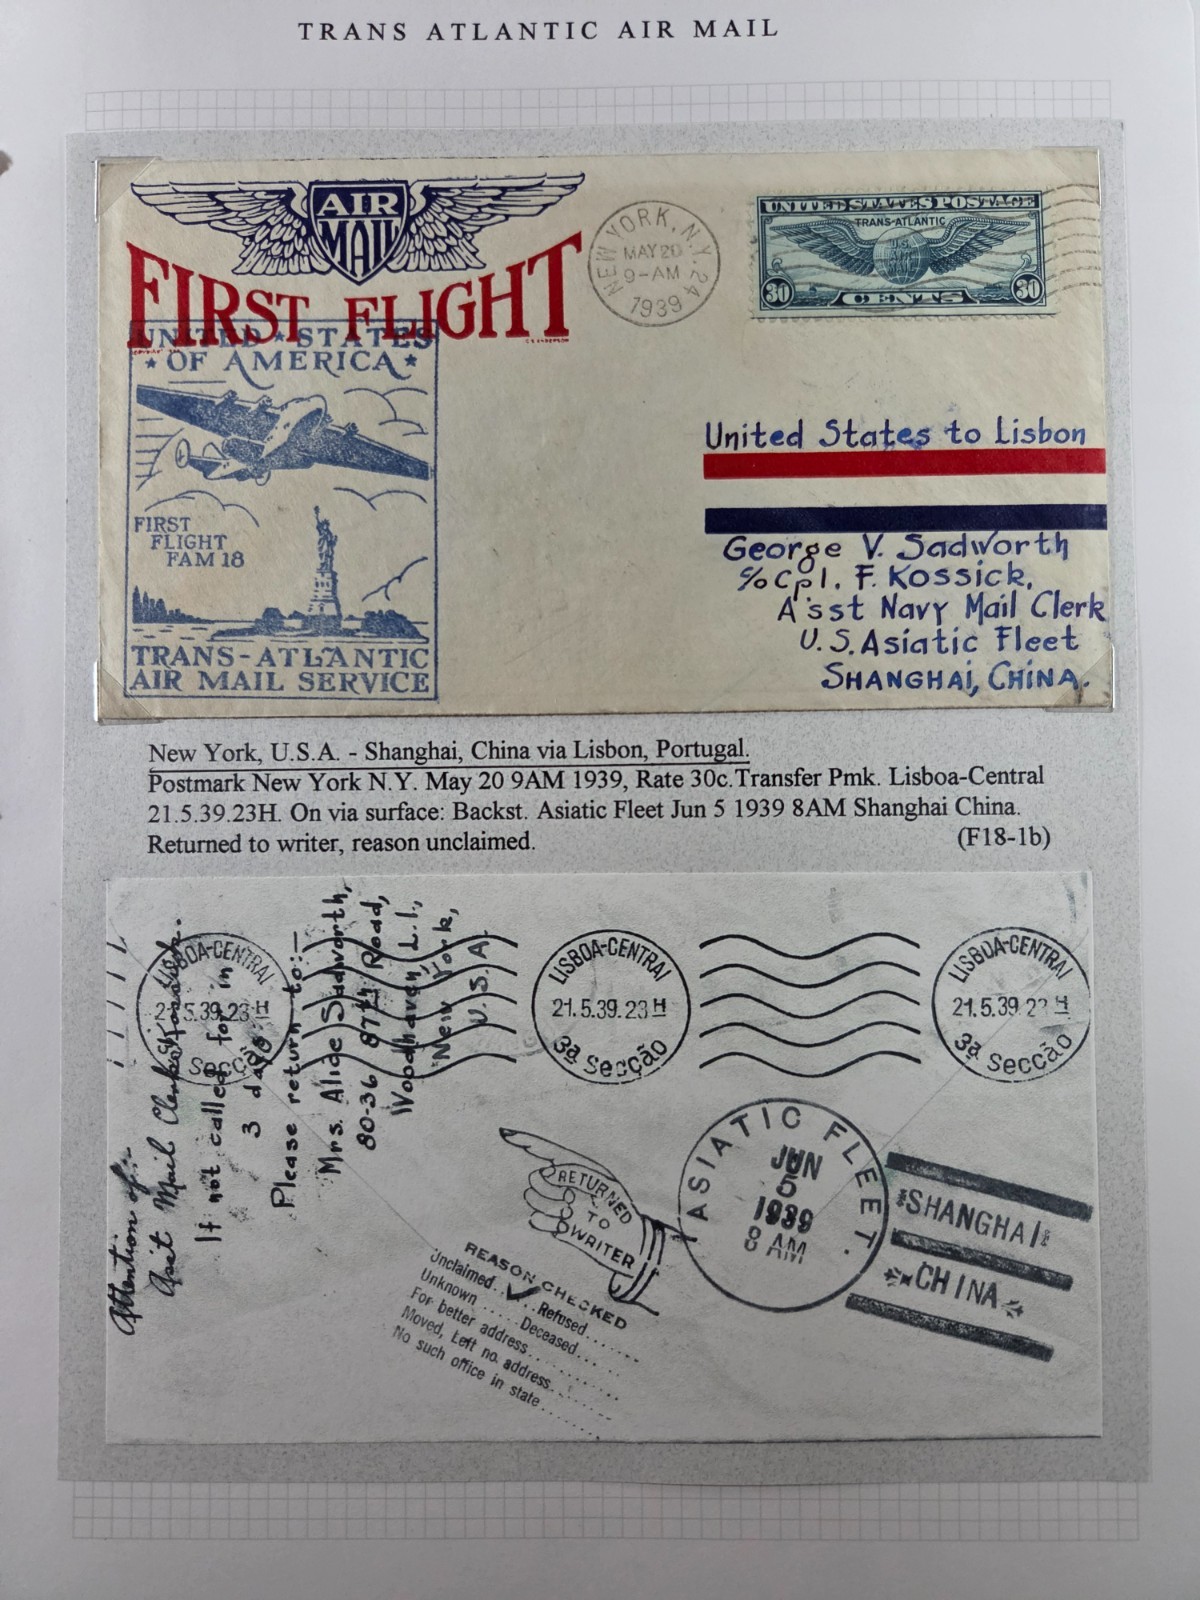 TRANS ATLANTIC AIR MAIL
AIR
MAIL
FIRST FLIGHT
C S ANDERSON
UNITED ★ STATES
★ OF AMERICA ★
FIRST
FLIGHT
FAM 18
TRANS-ATLANTIC
AIR MAIL SERVICE
NEW YORK, N.Y. 24
MAY 20
9-AM
1939
UNITED STATES POSTAGE
TRANS-ATLANTIC
U.S.
AIR
MAIL
30 CENTS 30
United States to Lisbon
George V. Sadworth
c/o Cpl. F. Kossick,
A'sst Navy Mail Clerk
U.S. Asiatic Fleet
SHANGHAI, CHINA.
New York, U.S.A. - Shanghai, China via Lisbon, Portugal.
Postmark New York N.Y. May 20 9AM 1939, Rate 30c.Transfer Pmk. Lisboa-Central
21.5.39.23H. On via surface: Backst. Asiatic Fleet Jun 5 1939 8AM Shanghai China.
Returned to writer, reason unclaimed. (F18-1b)
LISBOA-CENTRAL
21.5.39.23H
3ª Secção
LISBOA-CENTRAL
21.5.39.23H
3ª Secção
LISBOA-CENTRAL
21.5.39.23H
3ª Secção
Attention of:-
Asst Mail Clerk Kossick.
If not called for in
3 days
Please return to:-
Mrs. Alide Sadworth,
80-36 87th Road,
Woodhaven, L.I.,
New York,
U.S.A.
RETURNED
TO
WRITER
REASON CHECKED
Unclaimed..✓..Refused......
Unknown ..... Deceased.....
For better address............
Moved, Left no. address.........
No such office in state.........
ASIATIC FLEET.
JUN
5
1939
8 AM
SHANGHAI
CHINA